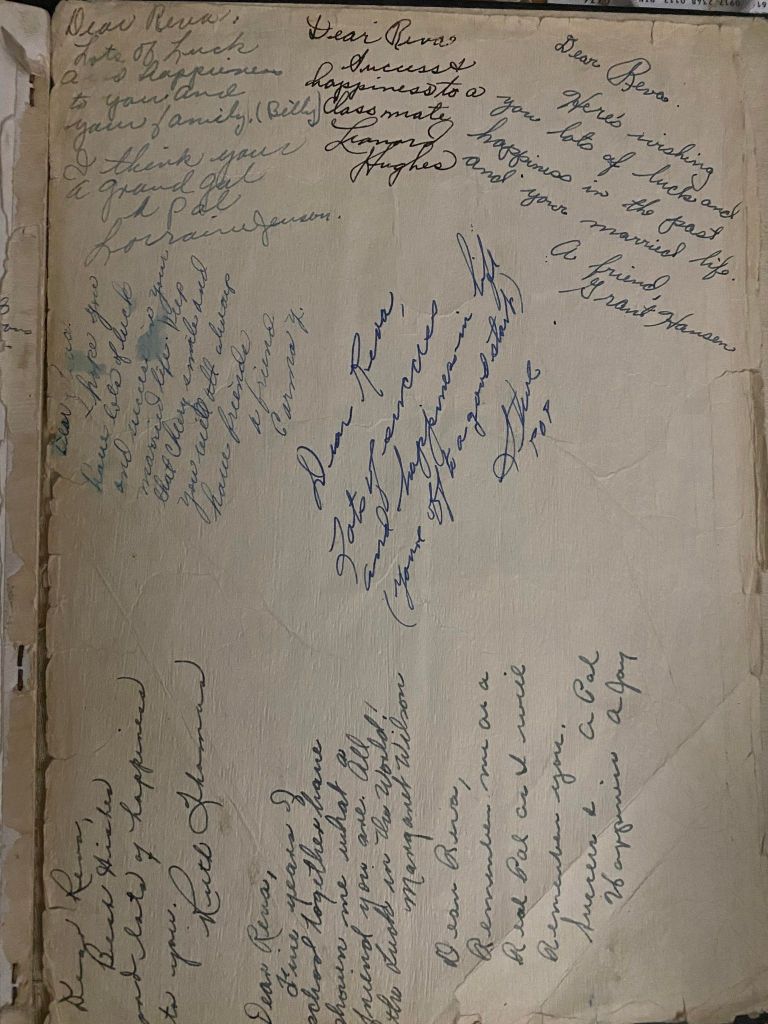 Dear Reva,
Lots of Luck
and happiness
to you and
your family. (Billy)
I think your
a grand gal
A Pal
Lorraine Jenson.
Dear Reva
Success &
happiness to a
Classmate
Leonard
Hughes
Dear Reva.
Here's wishing
you lots of luck and
happiness in the past
and your married life.
A friend,
Grant Hansen
Dear
I hope you
have lots of luck
and success in your
married life. Keep
that cheery smile and
you will all always
have friends
a friend
Carma Y.
Dear Reva,
Lots of success
and happiness in life
(your off to a good start)
Dear Reva,
Best Wishes
and lots of happiness
to you.
Ruth Thomas
Dear Reva,
Five years of
school together have
shown me what a
friend you are. All
the Luck in the World!
Margaret Wilson
Dear Reva,
Remember me as a
Real Pal as I will
Remember you.
Success & a Pal
Happiness a Jay